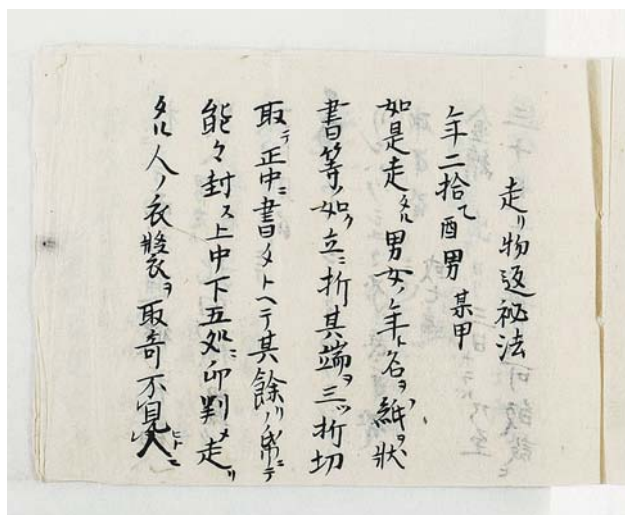 走リ物返祕法
年二拾乙酉男 某甲
如是走タル男女ノ年ト名ヲ紙ヲ狀
書等ノ如ク立ニ折其端ヲ三ッ折切
取テ正中ニ書タトヘテ其餘リノ帋ニテ
能々封ス上中下五処ニ印判メ走リ
タル人ノ衣裝ヲ取寄不見人ニ
ヒトニ